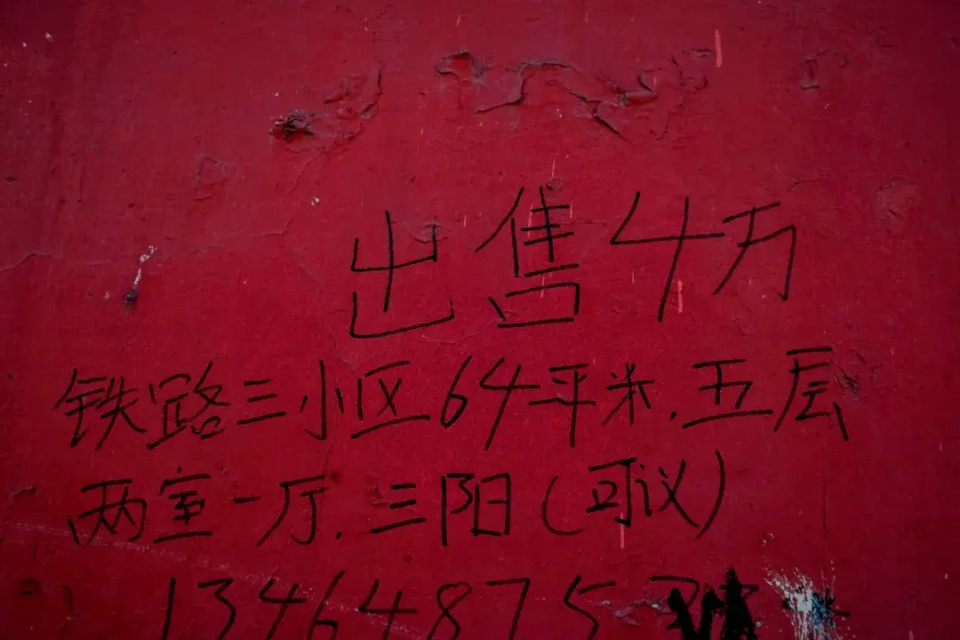 出售4万
铁路三小区64平米.五层
两室一厅.三阳(可议)
13464875